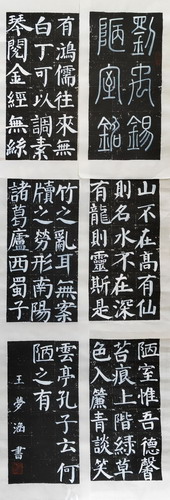 劉禹錫
陋室銘
山不在高有仙
則名水不在深
有龍則靈斯是
陋室惟吾德馨
苔痕上階緑草
色入簾青談笑
有鴻儒往來無
白丁可以調素
琴閱金經無絲
竹之亂耳無案
牘之勞形南陽
諸葛廬西蜀子
雲亭孔子云何
陋之有
王夢涵書